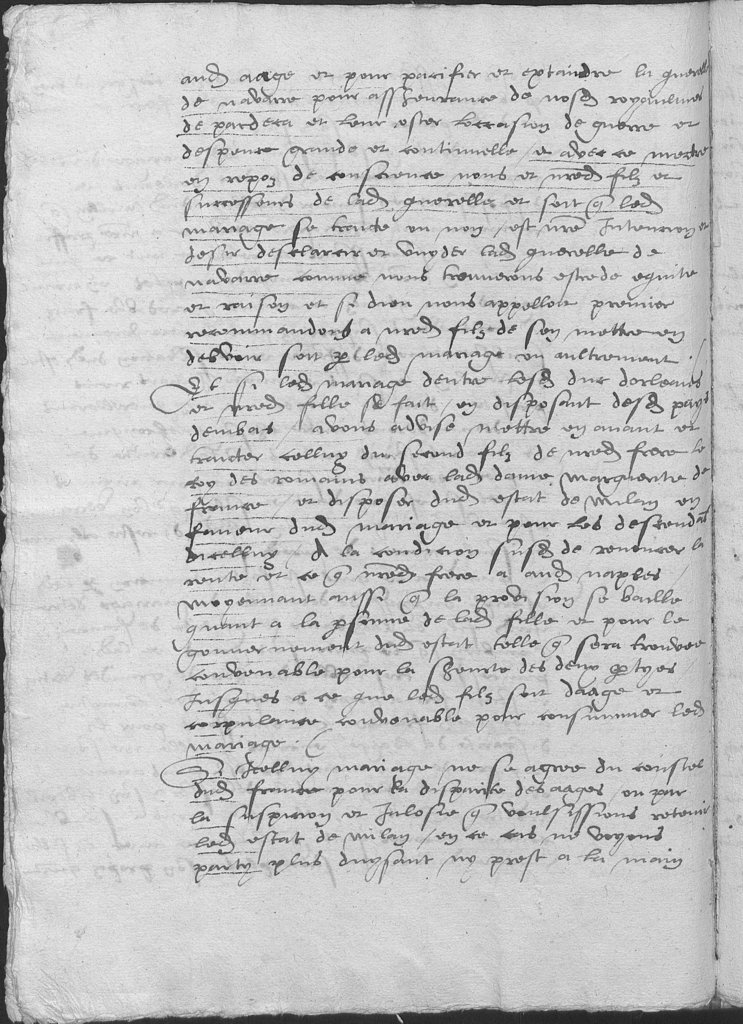 aud aage et pour pacifier et extaindre la querelle
de navarre pour assheurance de nosd royaulmes
de pardeca et leur oster loccasion de guerre et
despence grande et continuelle / et avec ce mectre
en repoz de conscience nous et nred filz et
successeurs de lad querelle et soit q led
mariage se traicte ou non / est nre intencion et
desir desclarcir et vuyder lad querelle de
navarre comme nous trouverons estre de equite
et raison et si dieu nous appelloit premier
recommandons a nred filz de sen mettre en
debvoir soit p led mariage ou aultrement /
Et si led mariage dentre lesd duc dorleans
et nred fille se fait / en disposant desd pays
dembas / avons advise mettre en avant et
traicter celluy du second filz de nred frere le
roy des romains avec lad dame marguerite de
france / et disposer dud estat de milan en
faveur dud mariage et pour les descendans
dicelluy / A la condicion susd de renoncer la
rente et ce q nred frere a aud naples /
moyennant aussi q la provision se baille
quant a la personne de lad fille et pour le
gouvernement dud estat telle q sera trouvee
convenable pour la sheurte des deux partyes
Jusques a ce que led filz soit daage et
corpulance convenable pour consummer led
mariage /
Si Icelluy mariage ne se agree du coustel
dud france pour la disparite des aages ou par
la suspicion et Jalosie q voulsissions retenir
led estat de milan / en ce cas ne voyons
party plus duysant ny prest a la main